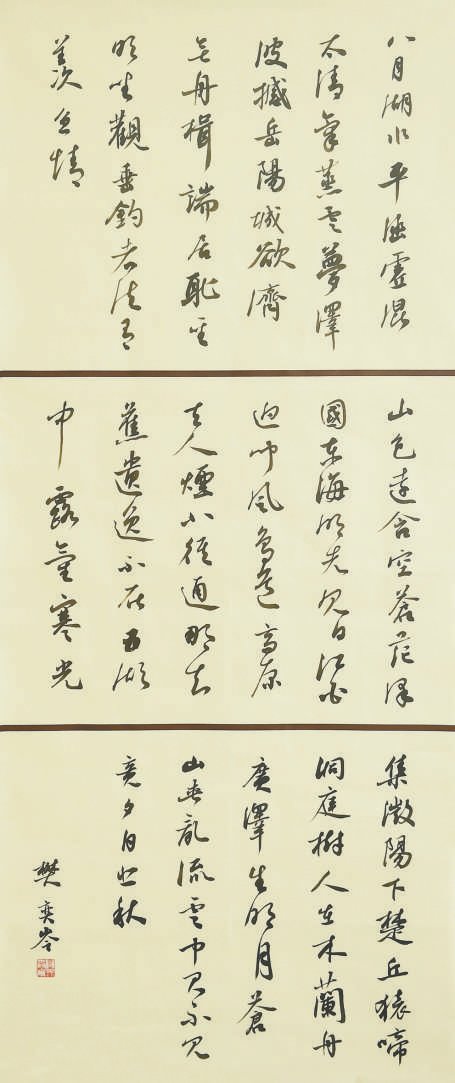 八月湖水平涵虛混
太清氣蒸雲夢澤
波撼岳陽城欲濟
無舟楫端居恥聖
明坐觀垂釣者徒有
羨魚情
山色遠含空蒼茫澤
國東海明先見日江白
迥聞風鳥道高原
去人煙小徑通那知
舊遺逸不在五湖
中 露氣寒光
集微陽下楚丘猿啼
洞庭樹人在木蘭舟
廣澤生明月蒼
山夾亂流雲中君不見
竟夕自悲秋
樊奕岑